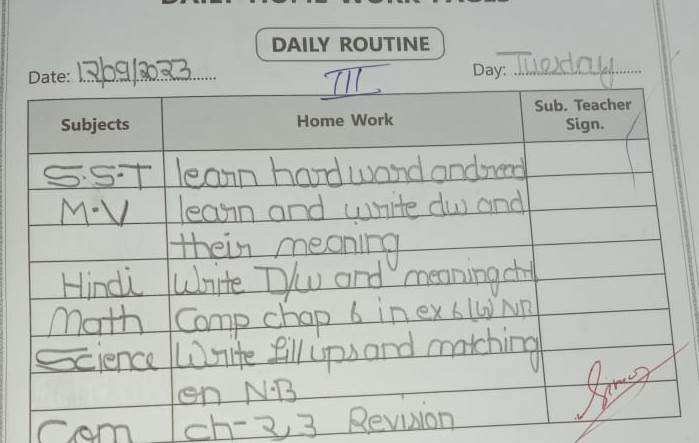 DAILY HOME WORK PAGES
DAILY ROUTINE
Date: 12/09/2023 Day: Tuesday
III
Subjects Home Work Sub. Teacher Sign.
S.S.T learn hard word and read
M.V learn and write dw and
their meaning
Hindi Write D/w and meaning ch1
Math Comp chap 6 in ex 6 NB
Science Write fill ups and matching
on N.B
Com ch-2,3 Revision